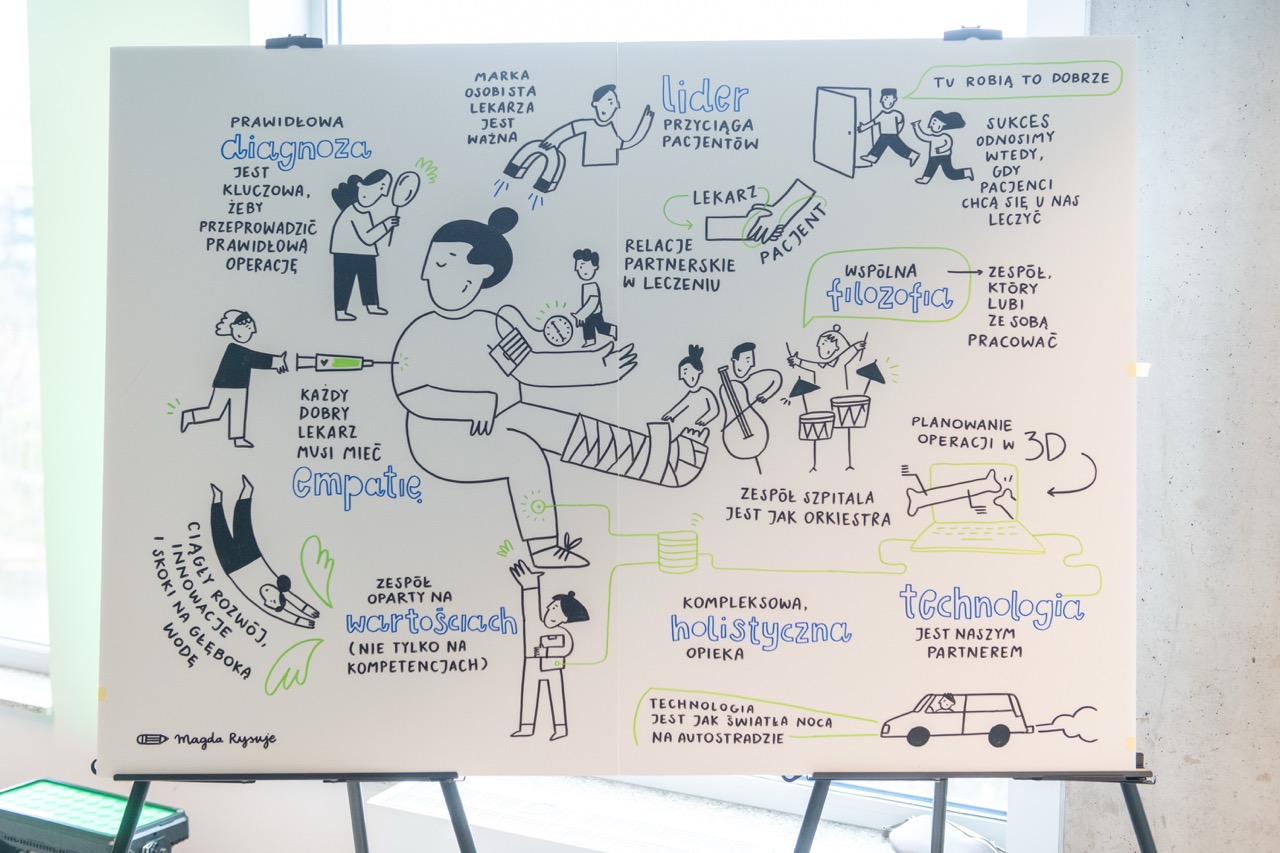 MARKA
OSOBISTA
LEKARZA
JEST
WAŻNA
lider
PRZYCIĄGA
PACJENTÓW
TU ROBIĄ TO DOBRZE
SUKCES
ODNOSIMY
WTEDY,
GDY
PACJENCI
CHCĄ SIĘ U NAS
LECZYĆ
PRAWIDŁOWA
diagnoza
JEST
KLUCZOWA,
ŻEBY
PRZEPROWADZIĆ
PRAWIDŁOWĄ
OPERACJĘ
LEKARZ
PACJENT
RELACJE
PARTNERSKIE
W LECZENIU
WSPÓLNA
filozofia
ZESPÓŁ,
KTÓRY
LUBI
ZE SOBĄ
PRACOWAĆ
KAŻDY
DOBRY
LEKARZ
MUSI MIEĆ
empatię
PLANOWANIE
OPERACJI W 3D
ZESPÓŁ SZPITALA
JEST JAK ORKIESTRA
CIĄGŁY ROZWÓJ,
INNOWACJE
I SKOKI NA GŁĘBOKĄ
WODĘ
ZESPÓŁ
OPARTY NA
wartościach
(NIE TYLKO NA
KOMPETENCJACH)
KOMPLEKSOWA,
holistyczna
OPIEKA
technologia
JEST NASZYM
PARTNEREM
TECHNOLOGIA
JEST JAK ŚWIATŁA NOCĄ
NA AUTOSTRADZIE
Magda Rysuje